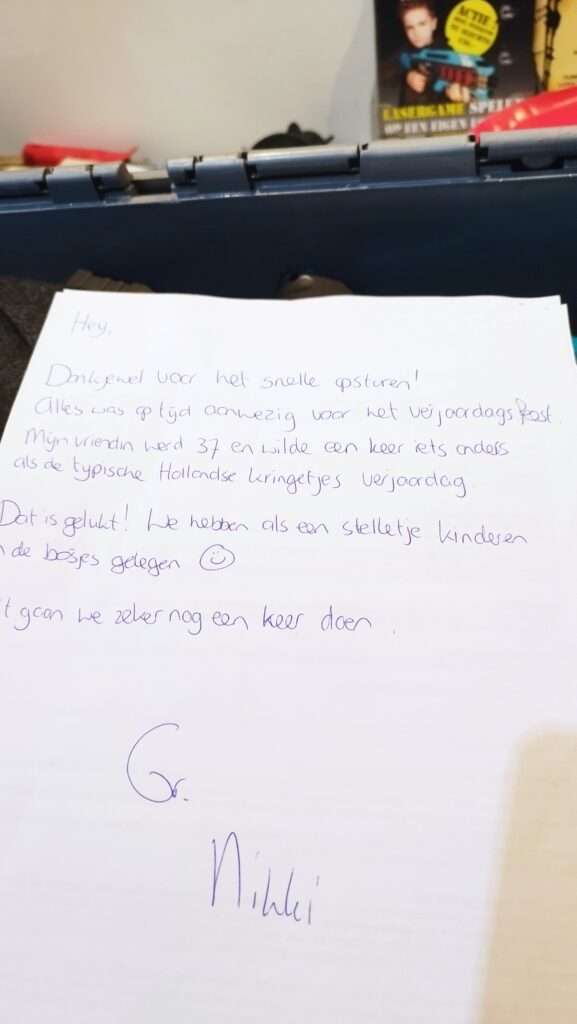 ACTIE
LASERGAME SPELE
OP EEN EIGEN
Hey,
Dankjewel voor het snelle opsturen!
Alles was op tijd aanwezig voor het verjaardagsfeest.
Mijn vriendin werd 37 en wilde een keer iets anders
als de typische Hollandse kringetjes verjaardag
Dat is gelukt! We hebben als een stelletje kinderen
n de bosjes gelegen
t gaan we zeker nog een keer doen.
Gr.
Nikki